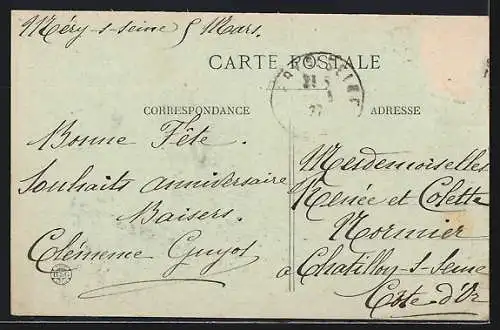 Méry-s-seine 5 Mars.
CARTE POSTALE
CORRESPONDANCE
ADRESSE
Bonne Fête.
Souhaits anniversaire
Baisers.
Clémence Guyot
Mesdemoiselles
Renée et Colette
Normier
à Chatillon-s-Seine
Côte d'Or